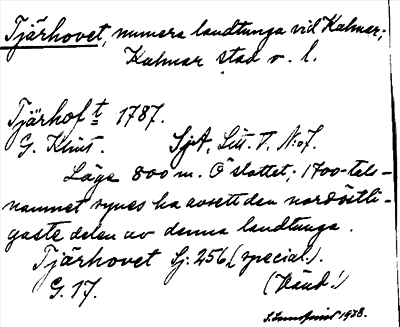 Tjärhovet, numera landtunga vid Kalmar;
Kalmar stad o. l.
Tjärhoft 1787.
G. Klint. SjA, Litt. V. No 7.
Läge 800 m. Ö slottet; 1700-tals-
namnet synes ha avsett den nordöstli-
gaste delen av denna landtunga.
Tjärhovet Gj. 256 (special).
G. 17. (Vänd!)
1938.